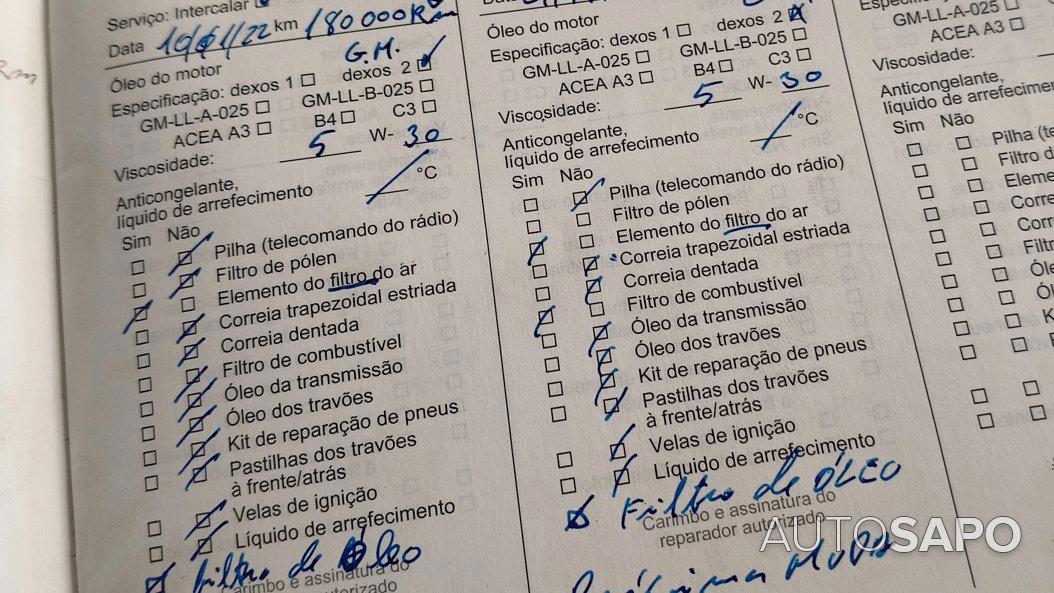 Serviço: Intercalar
Data 10/11/22 km 180 000 Km
G.M.
Óleo do motor
Especificação: dexos 1 dexos 2
GM-LL-A-025 GM-LL-B-025
ACEA A3 B4 C3
Viscosidade: 5 W- 30
Anticongelante,
líquido de arrefecimento °C
Sim Não
Pilha (telecomando do rádio)
Filtro de pólen
Elemento do filtro do ar
Correia trapezoidal estriada
Correia dentada
Filtro de combustível
Óleo da transmissão
Óleo dos travões
Kit de reparação de pneus
Pastilhas dos travões
à frente/atrás
Velas de ignição
Líquido de arrefecimento
Filtro de Óleo
Carimbo e assinatura do
Data
Óleo do motor
Especificação: dexos 1 dexos 2
GM-LL-A-025 GM-LL-B-025
ACEA A3 B4 C3
Viscosidade: 5 W- 30
Anticongelante,
líquido de arrefecimento °C
Sim Não
Pilha (telecomando do rádio)
Filtro de pólen
Elemento do filtro do ar
Correia trapezoidal estriada
Correia dentada
Filtro de combustível
Óleo da transmissão
Óleo dos travões
Kit de reparação de pneus
Pastilhas dos travões
à frente/atrás
Velas de ignição
Líquido de arrefecimento
Filtro de ÓLEO
Carimbo e assinatura do
reparador autorizado
Especificação:
GM-LL-A-025
ACEA A3
Viscosidade:
Anticongelante,
líquido de arrefecimen
Sim Não
Pilha (te
Filtro d
Eleme
Corre
Corr
Filt
Óle
Ól
K
AUTOSAPO